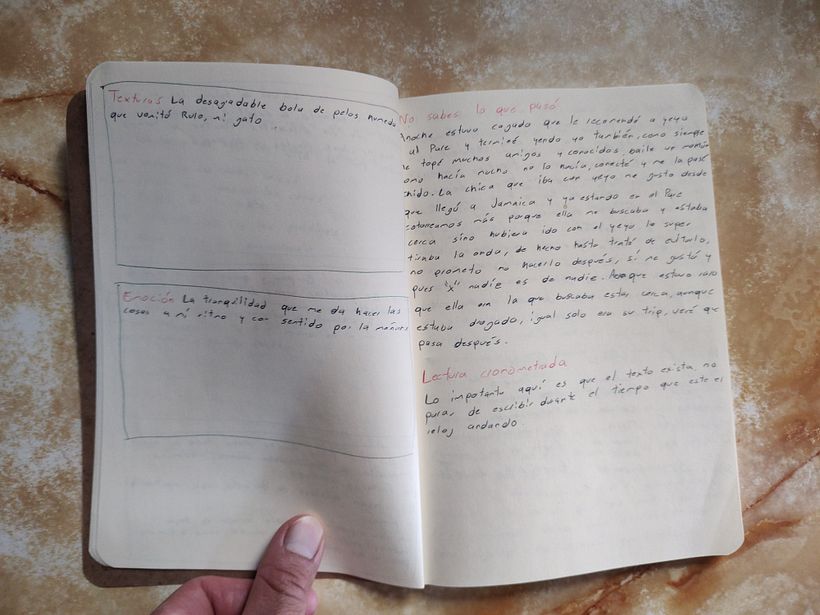 Texturas La desagradable bola de pelos humeda
que vomitó Rulo, mi gato
Emoción La tranquilidad que me da hacer las
cosas a mi ritmo y con sentido por la mañana
No sabes lo que pasó
Anoche estuvo cagado que le recomendé a yeyo
al Parc y terminé yendo yo también, como siempre
me topé muchos amigos y conocidos, baile un
como hacía mucho no lo hacía, conecté y me la pasé
chido. La chica que iba con yeyo me gusto desde
que llegó a Jamaica y ya estando en el Parc
cotorreamos más porque ella me buscaba y estaba
cerca sino hubiera ido con el yeyo le super
tiraba la onda, de hecho hasta traté de evitarlo,
no prometo no hacerlo después, sí me gustó y
pues "x" nadie es de nadie. Aunque estuvo raro
que ella era la que buscaba estar cerca, aunque
estaba drogada, igual solo era su trip, veré que
pasa después.
Lectura cronometrada
Lo importante aquí es que el texto exista, no
parar de escribir durante el tiempo que este el
reloj andando.